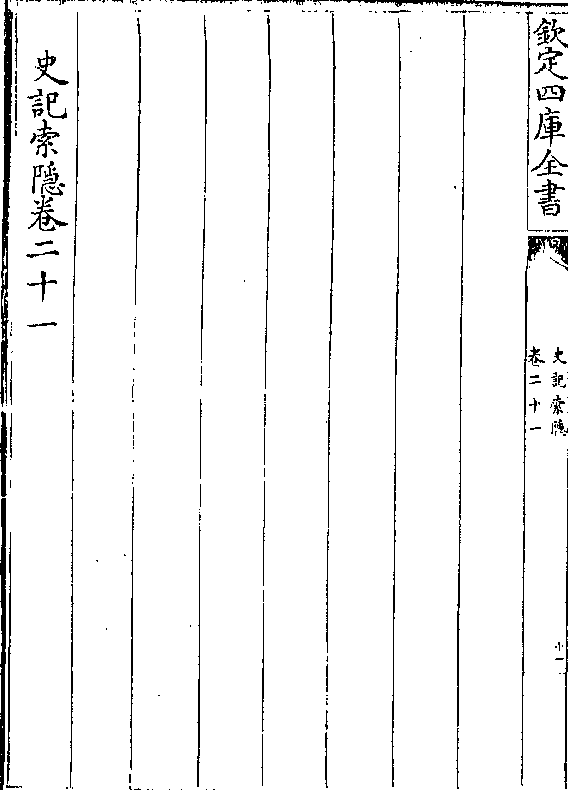 欽定四庫全書
史記索隱
卷二十一
史記索隱卷二十一